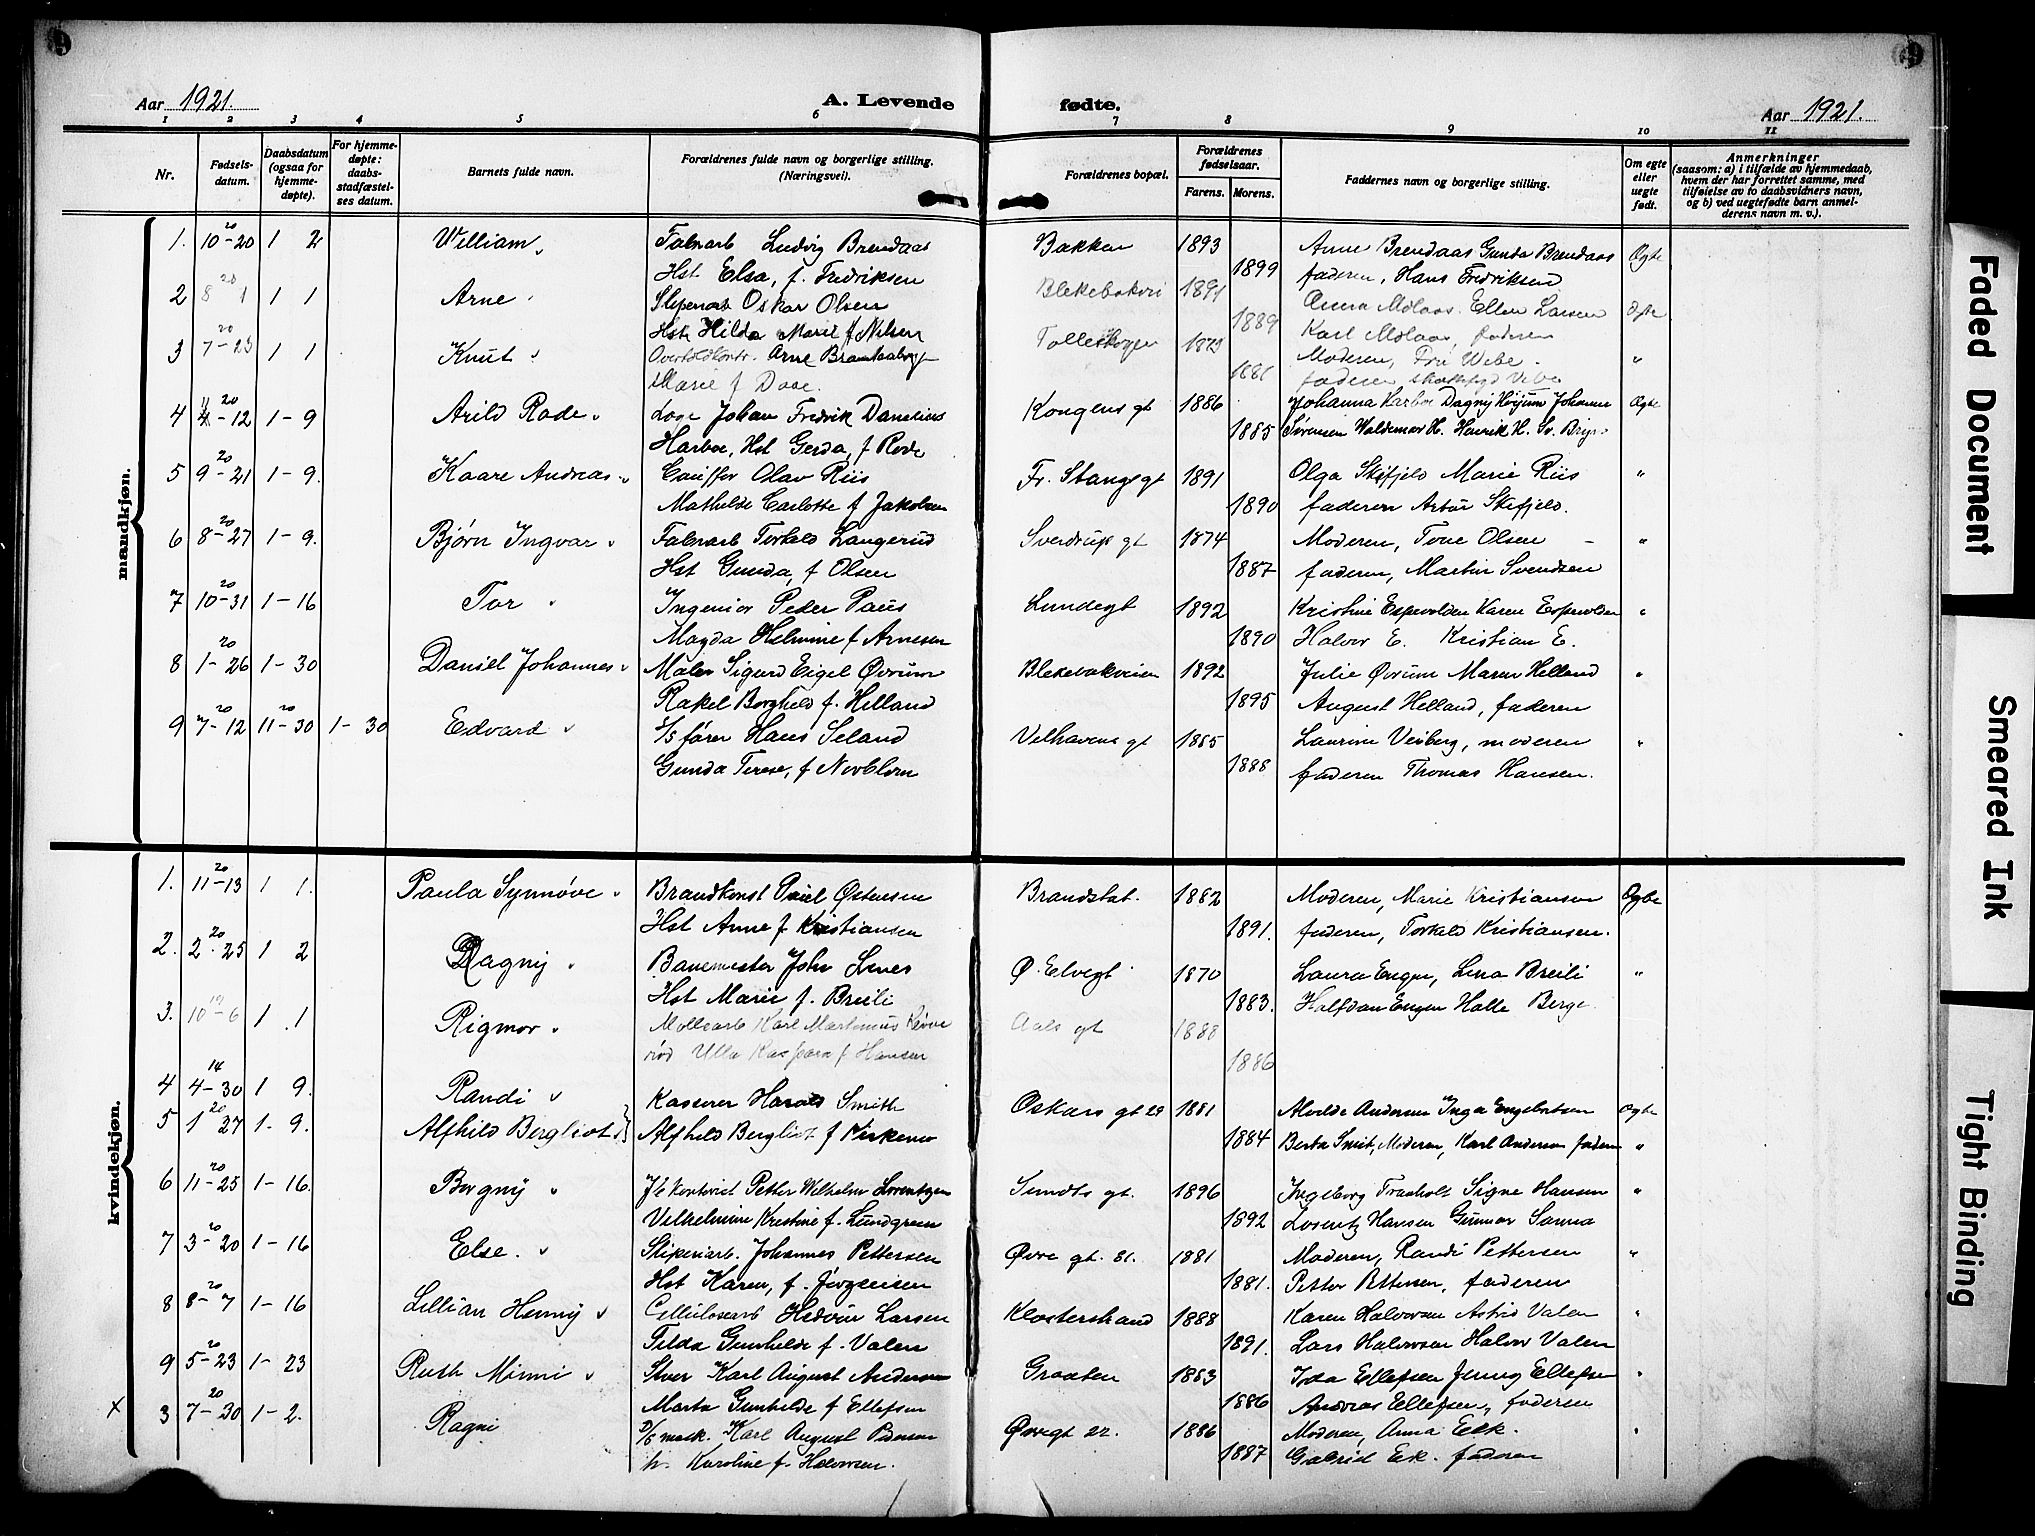 Aar 1921.
A. Levende
fødte.
Aar 1921.
1 2 3 4 5 6 7 8 9 10 11
Nr.
Fødsels-
datum.
Daabsdatum
(ogsaa for
hjemme-
døpte).
For hjemme-
døpte:
daabs-
stadfæstel-
ses datum.
Barnets fulde navn.
Forældrenes fulde navn og borgerlige stilling.
(Næringsvei).
Forældrenes bopæl.
Forældrenes
fødselsaar.
Farens. Morens.
Faddernes navn og borgerlige stilling.
Om egte
eller
uegte
født.
Anmerkninger
(saasom: a) i tilfælde av hjemmedaab,
hvem der har forrettet samme, med
tilføielse av to daabsvidners navn,
og b) ved uegtefødte barn anmel-
derens navn m. v.).
mandkjøn.
1. 10-20 20 1 2 William Fabrarb Ludvig Brendaas Bakken 1893 Anne Brendaas Gunda Brendaas Egte
Hst Elsa, f. Fredriksen 1899 faderen, Hans Fredriksen
2 8 1 20 1 1 Arne Slipearb Oskar Olsen Blekebakvei 1891 Anna Ellen Larsen Egte
Hst Hilda Marie f Nilsen 1889 Karl faderen
3 7-23 20 1 1 Knut Arne 1879 Moderen, Fru Vibe "
Marie f Daae. 1881 faderen Vibe
4 11-12 20 1-9 Arild Rode Johan Fredrik Danelius Kongens gt 1886 Johanna Harboe Dagny Johanne Egte
Harboe, Hst Gerda, f Rode 1885 Sørensen Waldemar H. Henrik H. Sv.
5 9-21 20 1-9. Kaare Andreas Olav Riis Fr. Stangs gt 1891 Olga Skifjeld Marie Riis "
Mathilde Carlotte f Jakobsen 1890 faderen Artur Skifjeld.
6 8-27 20 1-9. Bjørn Ingvar Fabrarb Torkeld Langerud Sverdrups gt 1874 Moderen, Tone Olsen "
Hst Gunda, f Olsen 1887 faderen, Martin Svendsen
7 10-31 20 1-16 Tor Ingeniør Peder Paus Lundegt 1892 Kristine Espevolden Karen Espevolden "
Magda Helmine f Arnesen 1890 Halvor E. Kristian E.
8 1-26 20 1-30 Daniel Johannes Maler Sigurd Eigel Øvrum Blekebakveien 1892 Julie Øvrum Maren Helland "
Rakel Borghild f. Helland 1895 August Helland, faderen
9 7-12 20 11-30 20 1-30 Edvard S/S fører Hans Seland Velhavens gt 1885 Laurine Veiberg, moderen "
Gunda Terese, f 1888 faderen Thomas Hansen.
kvindekjøn.
1. 11-13 20 1 1. Paula Synnøve Brandkonst Paul Østensen Brandstat. 1882 Moderen, Marie Kristiansen Egte
Hst Anne f Kristiansen 1891. faderen, Torkeld Kristiansen.
2. 2-25 20 1 2 Dagny Banemester John Lines Ø. Elvegt 1870 Laura Engen, Lina Breili "
Hst Marie f. Breili 1883. Halfdan Engen Halle Berge
3. 10-6 19 1 1 Rigmor Karl Martinus Aals gt 1888
rød Ulla Kaspara f Hansen 1886
4 4-30 14 1 9. Randi Kaserer Harald Smith Oskars gt 29 1881 Alvilde Andersen Inga Engebretsen Egte
5 1 27 20 1-9. Alfhild Bergliot Alfhild Bergliot f Kirkemo 1884 Berta Smit, Moderen, Karl Andersen faderen "
6 11-25 20 1-16. Borgny Petter Wilhelm Lorentzen Sundts gt. 1896 Ingeborg Fraaholt Signe Hansen "
Vilhelmine Kristine f. Lundgreen 1892 Lorentz Hansen Gunnar Sanna
7 3-20 20 1-16 Else. Slipeniarb. Johannes Pettersen Øvre gt. 81. 1881 Moderen, Randi Pettersen "
Hst Karen, f. Jørgensen 1881. Petter Pettersen, faderen
8 8-7 20 1-16 Lillian Henny Cellulosearb Larsen Klosterstrand 1888 Karen Halvorsen Astrid Valen "
Tilda Gunhilde f. Valen 1891. Lars Halvorsen Halvor Valen
9 5-23 20 1-23 Ruth Minni Karl August Andersen Graaten 1883 Ida Ellefsen Jenny Ellefsen "
Marta Gunhilde f Ellefsen 1886 Andreas Ellefsen, faderen
x 3 7-30 20 1-2. Ragni D/S mask. Karl August Pedersen Øvregt 22. 1886 Moderen, Anna Eek. "
h. Karoline f. Halvorsen. 1887 Gabriel Eek. faderen
Faded Document
Smeared Ink
Tight Binding